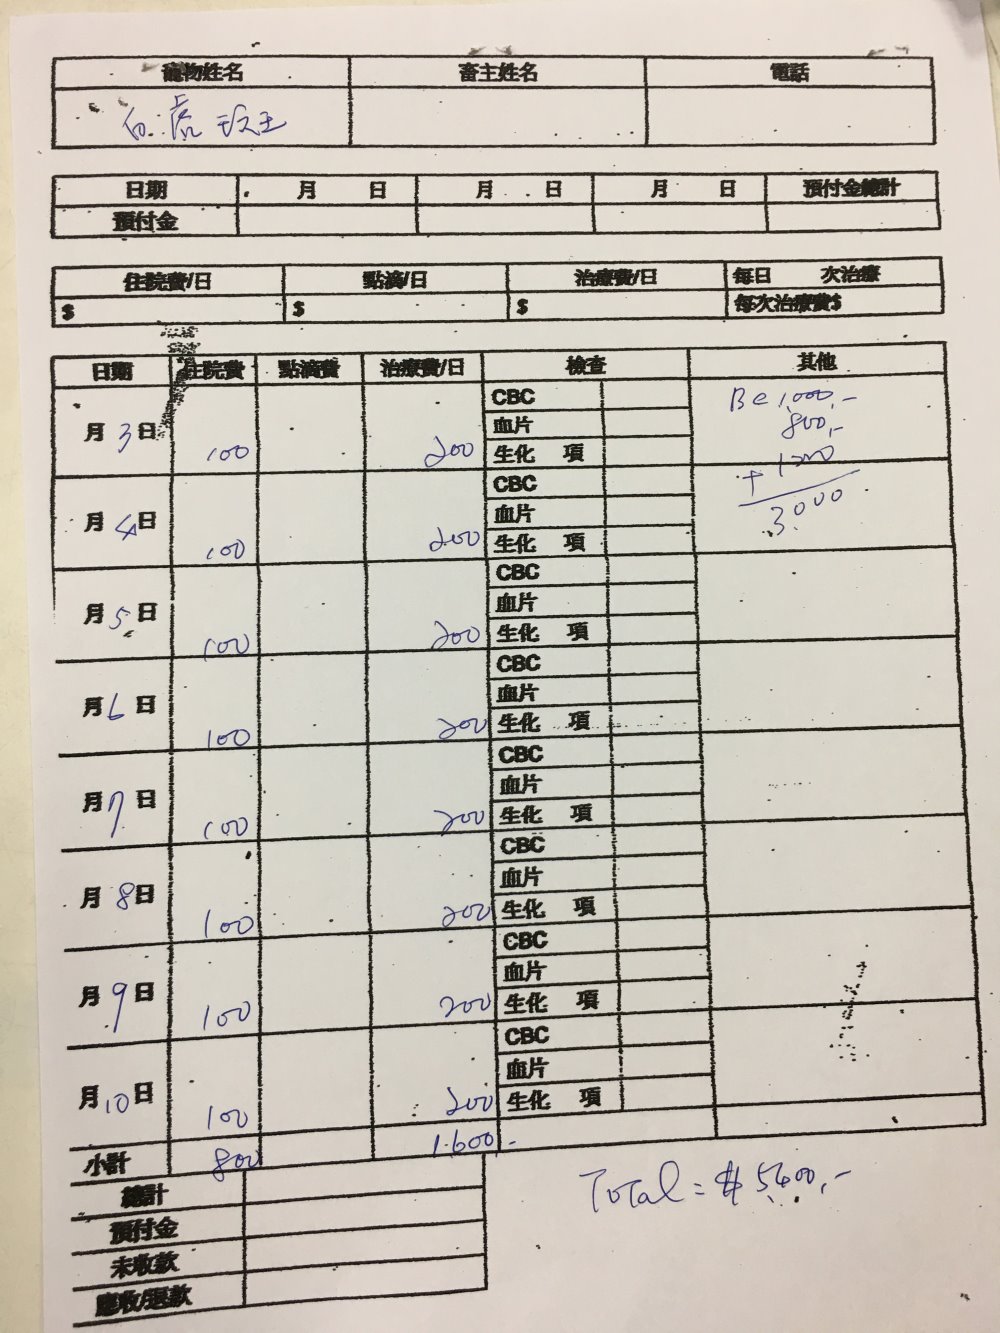 寵物姓名 畜主姓名 電話
日期 月 日 月 日 月 日 預付金總計
預付金
住院費/日 點滴/日 治療費/日 每日 次治療
$ $ $ 每次治療費$
日期 住院費 點滴費 治療費/日 檢查 其他
CBC
月 3 日 100 200 血片
生化 項
1,000,-
800,-
+ 1200
3000
CBC
月 4 日 100 200 血片
生化 項
CBC
月 5 日 100 200 血片
生化 項
CBC
月 6 日 100 200 血片
生化 項
CBC
月 7 日 100 200 血片
生化 項
CBC
月 8 日 100 200 血片
生化 項
CBC
月 9 日 100 200 血片
生化 項
CBC
月 10 日 100 200 血片
生化 項
小計 800 1.600.-
總計
預付金
未收款
應收/退款
Total = $ 5400,-